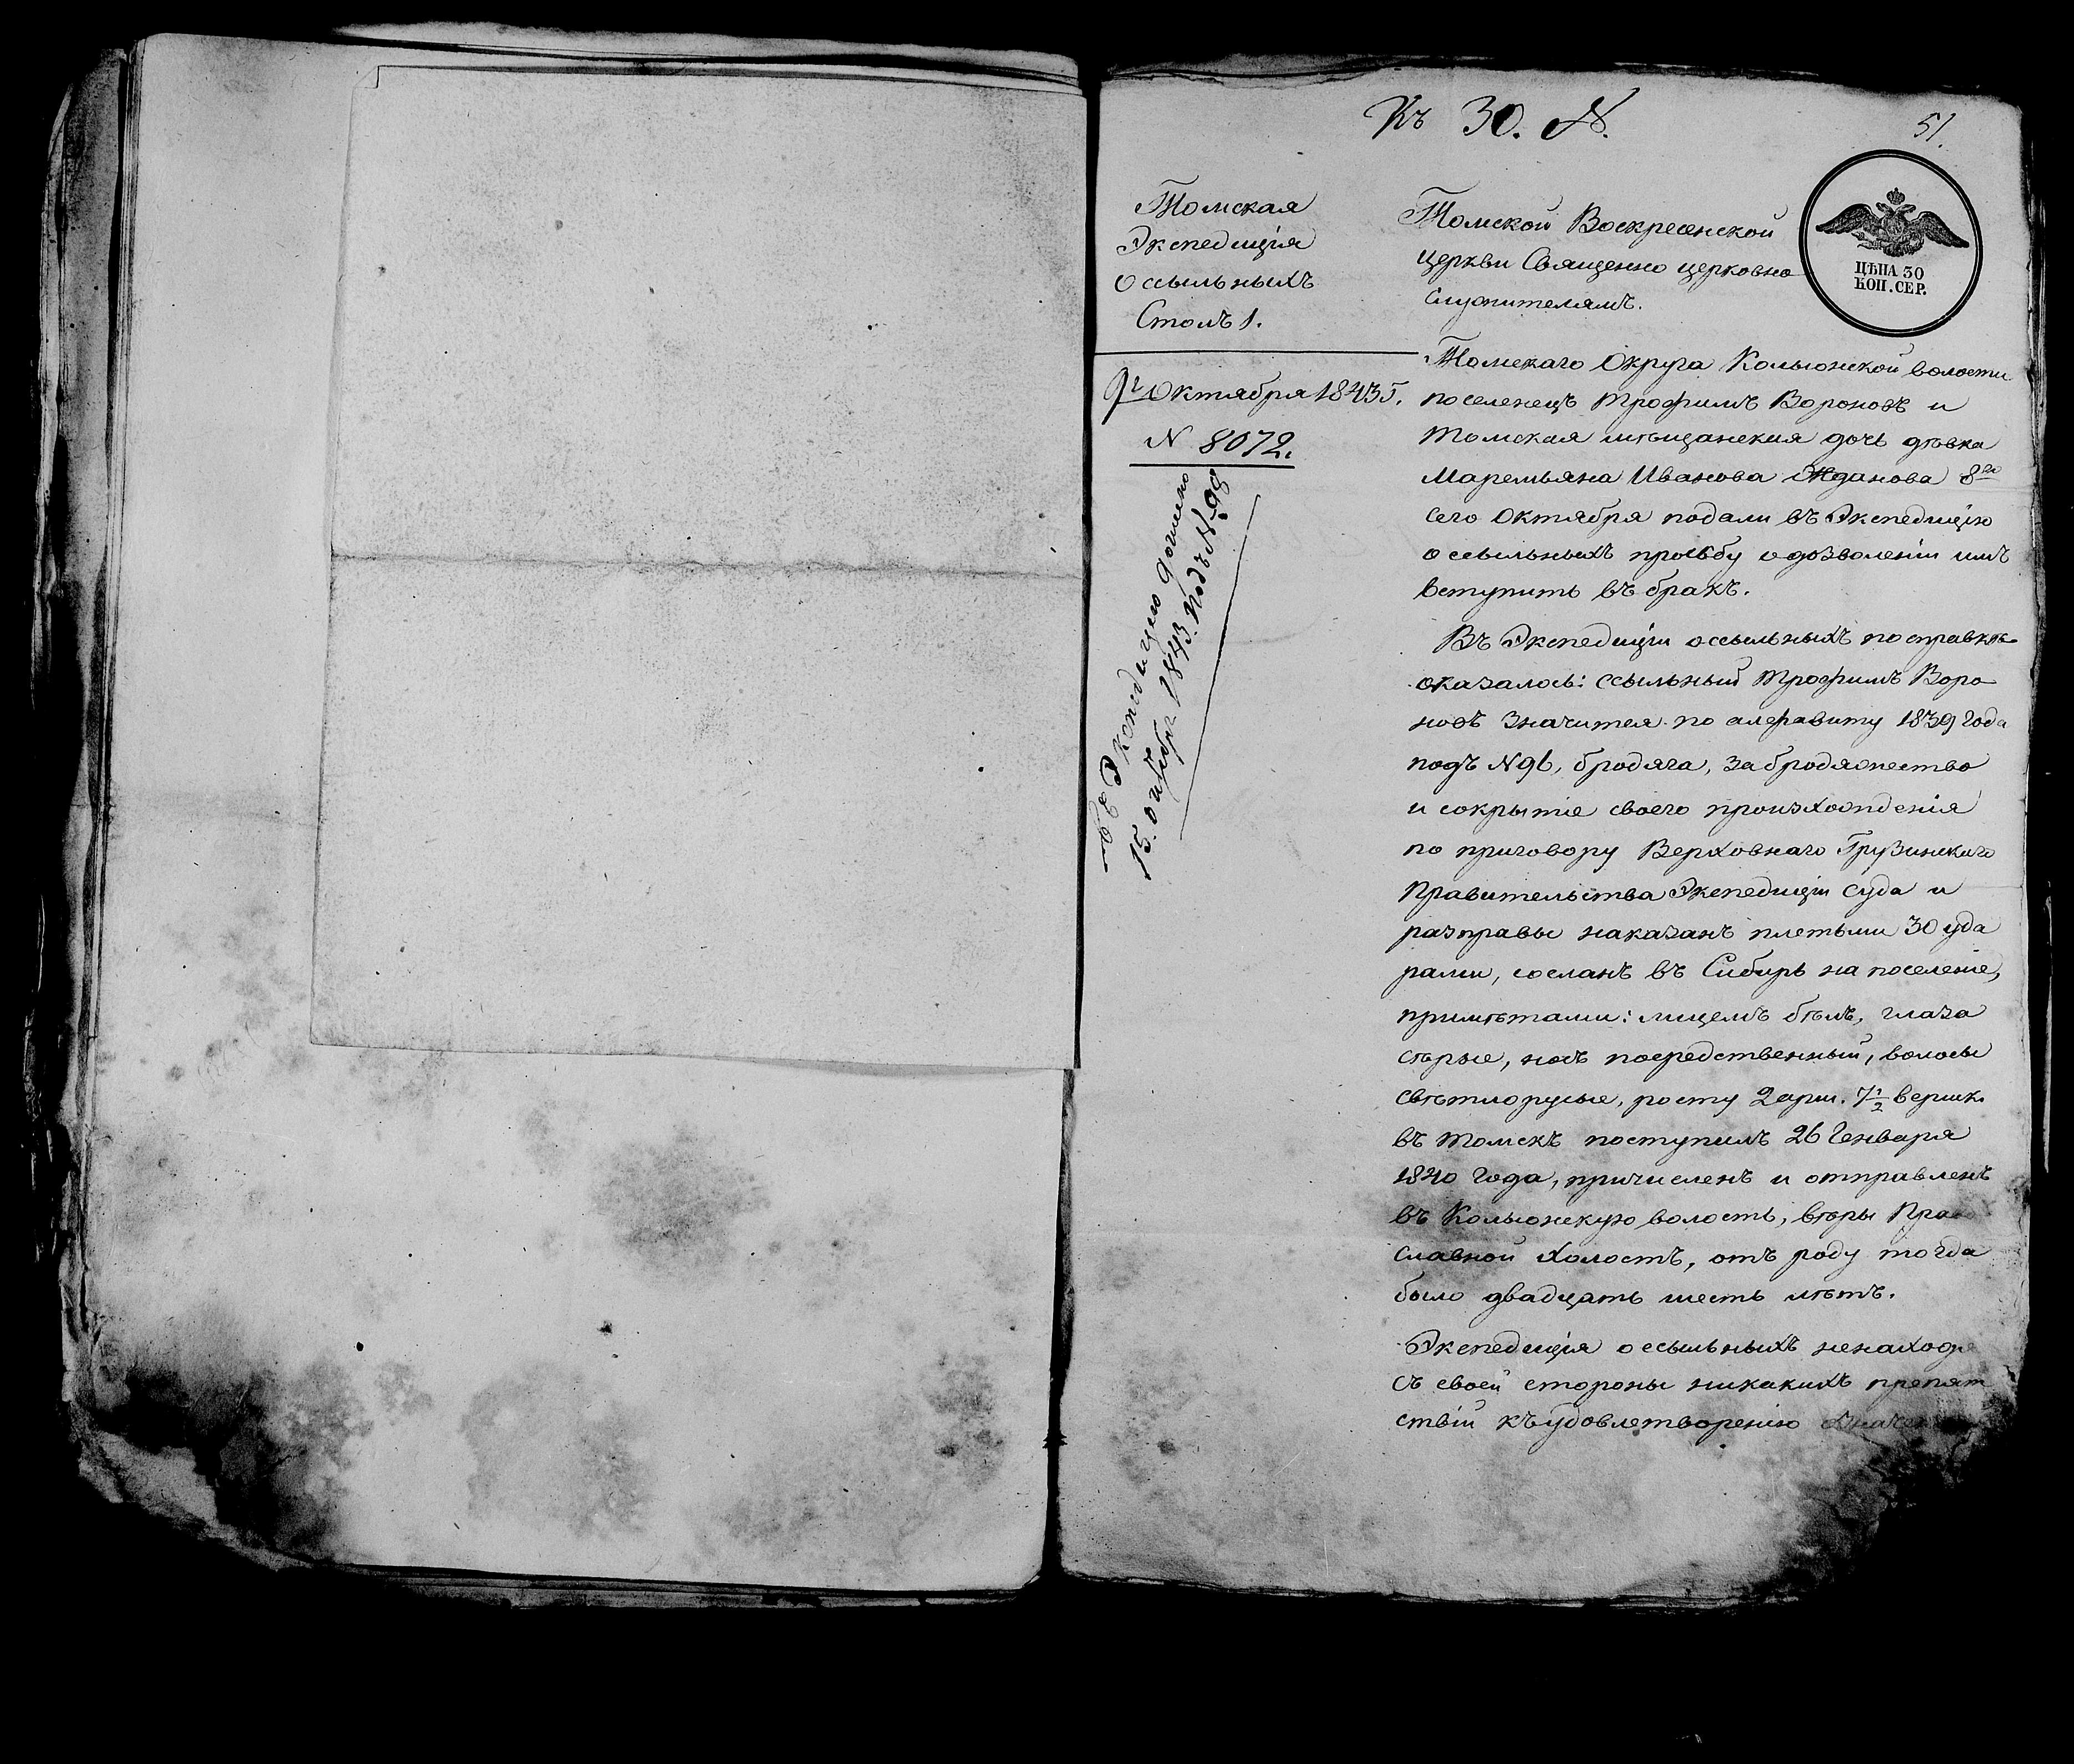 Къ 30. №.
51.
Томская
Экспедиція
о ссыльныхъ
Столъ 1.
Октября 1843
N 8072.
Въ Экспедицию донесено
15. октебря 1843. подъ № 98
ЦѢНА 30
КОП. СЕР.
Томской Воскресенской
церкви Священно церковно
служителямъ.
Томскаго Округа Колыонской волости
поселенецъ Трофимъ Вороновъ и
томская мѣщанская дочь дѣвка
Маремьяна Иванова Жданова 8го
сего Октября подали въ Экспедицію
о ссыльныхъ прозьбу о дозволеніи имъ
вступить въ бракъ.
Въ Экспедиціи о ссыльныхъ по справкѣ
оказалось: ссыльный Трофимъ Воро
новъ значится по алфавиту 1839 года
подъ N 96, бродяга, за бродяжество
и сокрытіе своего происхожденія
по приговору Верховнаго Грузинскаго
Правительства Экспедиціи суда и
разправы наказанъ плетьми 30 уда
рами, сосланъ въ Сибирь на поселеніе,
примѣтами: лицемъ бѣлъ, глаза
сѣрые, носъ посредственный, волосы
свѣтлорусые, росту 2 арш. 7 1/2 вершк.
въ Томскъ поступилъ 26 Генваря
1840 года, причисленъ и отправленъ
въ Колыонскую волость, вѣры Право
славной холостъ, отъ роду тогда
было двадцать шесть лѣтъ.
Экспедиція о ссыльныхъ ненаходя
съ своей стороны никакихъ препят
ствій къ удовлетворенію